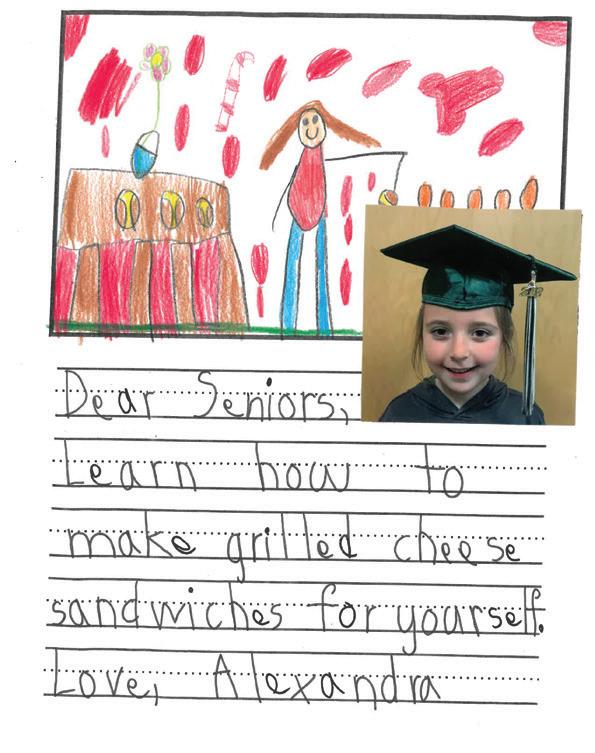 Dear Seniors,
Learn how to
make grilled cheese
sandwiches for yourself.
Love, Alexandra